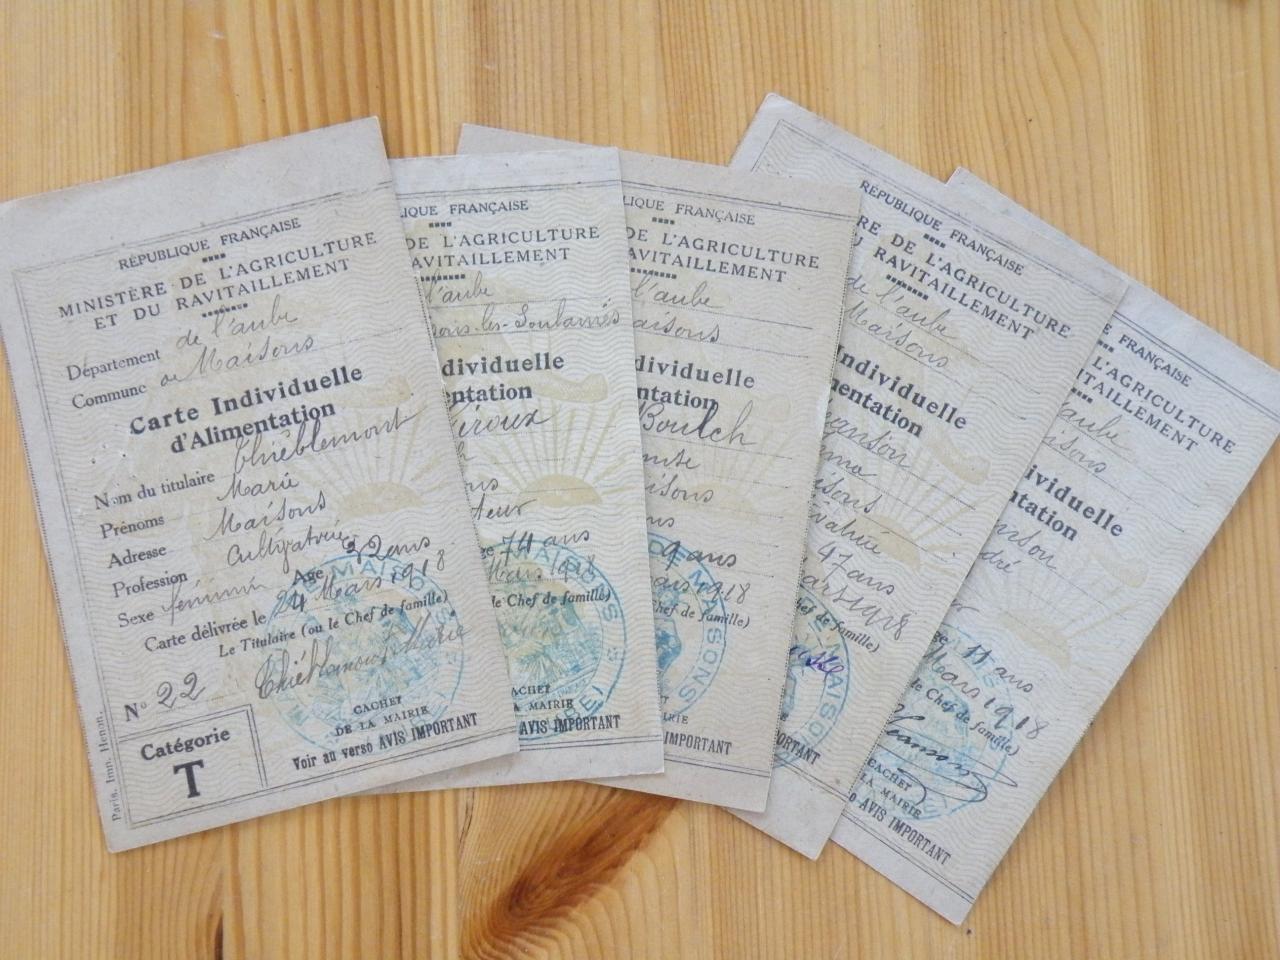 RÉPUBLIQUE FRANÇAISE
MINISTÈRE DE L'AGRICULTURE
ET DU RAVITAILLEMENT
Département de l'aube
Commune de Maisons
Carte Individuelle
d'Alimentation
Nom du titulaire Thiéblemont
Prénoms Marie
Adresse Maisons
Profession Cultivatrice
Sexe féminin Age 32 ans
Carte délivrée le 24 Mars 1918
Le Titulaire (ou le Chef de famille)
Thiéblemont Marie
N° 22
CACHET
DE LA MAIRIE
Catégorie
T
Voir au verso AVIS IMPORTANT
Paris. Imp. Henon.
MAISONS
LIQUE FRANÇAISE
DE L'AGRICULTURE
AVITAILLEMENT
l'aube
sons-les-Soulaines
dividuelle
entation
éroux
ns
teur
ge 74 ans
Mars 1918
le Chef de famille)
ACHET
LA MAIRIE
AVIS IMPORTANT
MAISONS
LIQUE FRANÇAISE
DE L'AGRICULTURE
RAVITAILLEMENT
l'aube
aisons
dividuelle
ntation
Boulch
isons
ns
9 ans
ars 1918
Chef de famille)
HET
MAIRIE
IMPORTANT
DE MAISONS
RÉPUBLIQUE FRANÇAISE
RE DE L'AGRICULTURE
U RAVITAILLEMENT
de l'aube
Maisons
Individuelle
mentation
eanson
isons
ivatrice
47 ans
ars 1918
Chef de famille)
ET
MAIRIE
PORTANT
MAISONS
E FRANÇAISE
L'AGRICULTURE
TAILLEMENT
aube
isons
ividuelle
ntation
anson
dré
ur
ge 11 ans
Mars 1918
le Chef de famille)
Jeanson
CACHET
LA MAIRIE
AVIS IMPORTANT